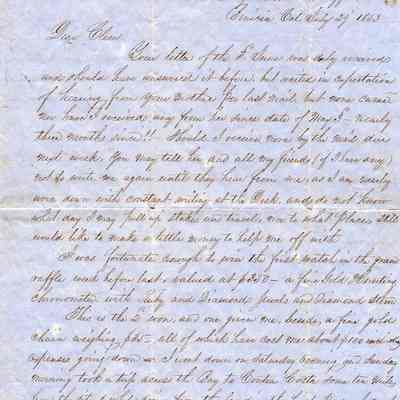 Benicia Cal July 29 1853
Dear Chum
Your letter of the 1st June was duly received
and should have answered it before, but waited in expectation
of hearing from your mother per last mail, but none came
nor have I received any from her since date of May 1 — nearly
three months since!! Should I receive none by the mail due
next week, you may tell her and all my friends (if I have any)
not to write me again until they hear from me, as I am nearly
worn down with constant writing at the Desk, and do not know
what day I may pull up stakes and travel, nor to what place, still
would like to make a little money to help me off with
I was fortunate enough to win the first watch in the grand
raffle week before last, valued at $350 — a fine Gold Hunting
chronometer with Ruby and Diamond Jewels and Diamond Steps
This is the 2 won, and one given me, beside, a fine gold
chain weighing all of which have cost me about $100 and my
expenses going down as I went down on Saturday evening and Sunday
morning took a trip across the Bay to Contra Costa some ten miles